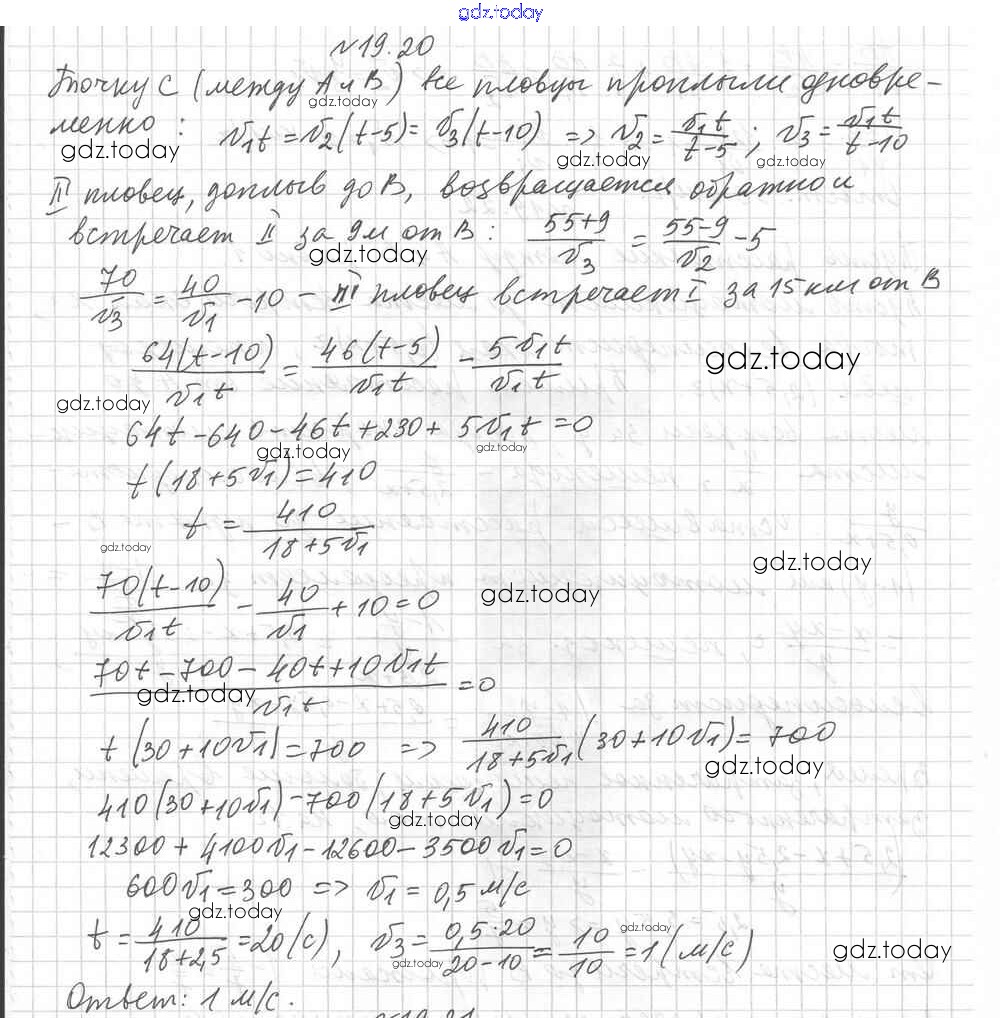 gdz.today
№19.20
В точку C (между A и B) все пловцы проплыли одновре-
gdz.today
менно: v₁t = v₂(t-5) = v₃(t-10) => v₂ = v₁t/(t-5); v₃ = v₁t/(t-10)
gdz.today gdz.today gdz.today
III пловец, доплыв до B, возвращается обратно и
встречает II за 9м от B: (55+9)/v₃ = (55-9)/v₂ - 5
gdz.today
70/v₃ = 40/v₁ - 10 - III пловец встречает I за 15 км от B
64(t-10)/(v₁t) = 46(t-5)/(v₁t) - 5v₁t/(v₁t)
gdz.today gdz.today
64t - 640 - 46t + 230 + 5v₁t = 0
gdz.today gdz.today
t(18+5v₁) = 410
t = 410/(18+5v₁)
gdz.today gdz.today
70(t-10)/(v₁t) - 40/v₁ + 10 = 0
gdz.today
(70t - 700 - 40t + 10v₁t)/(v₁t) = 0
gdz.today
t(30+10v₁) = 700 => 410/(18+5v₁) (30+10v₁) = 700
gdz.today
410(30+10v₁) - 700(18+5v₁) = 0
gdz.today
12300 + 4100v₁ - 12600 - 3500v₁ = 0
600v₁ = 300 => v₁ = 0,5 м/с
gdz.today
t = 410/(18+2,5) = 20(с), v₃ = (0,5·20)/(20-10) = 10/10 = 1(м/с)
gdz.today gdz.today gdz.today
Ответ: 1 м/с.